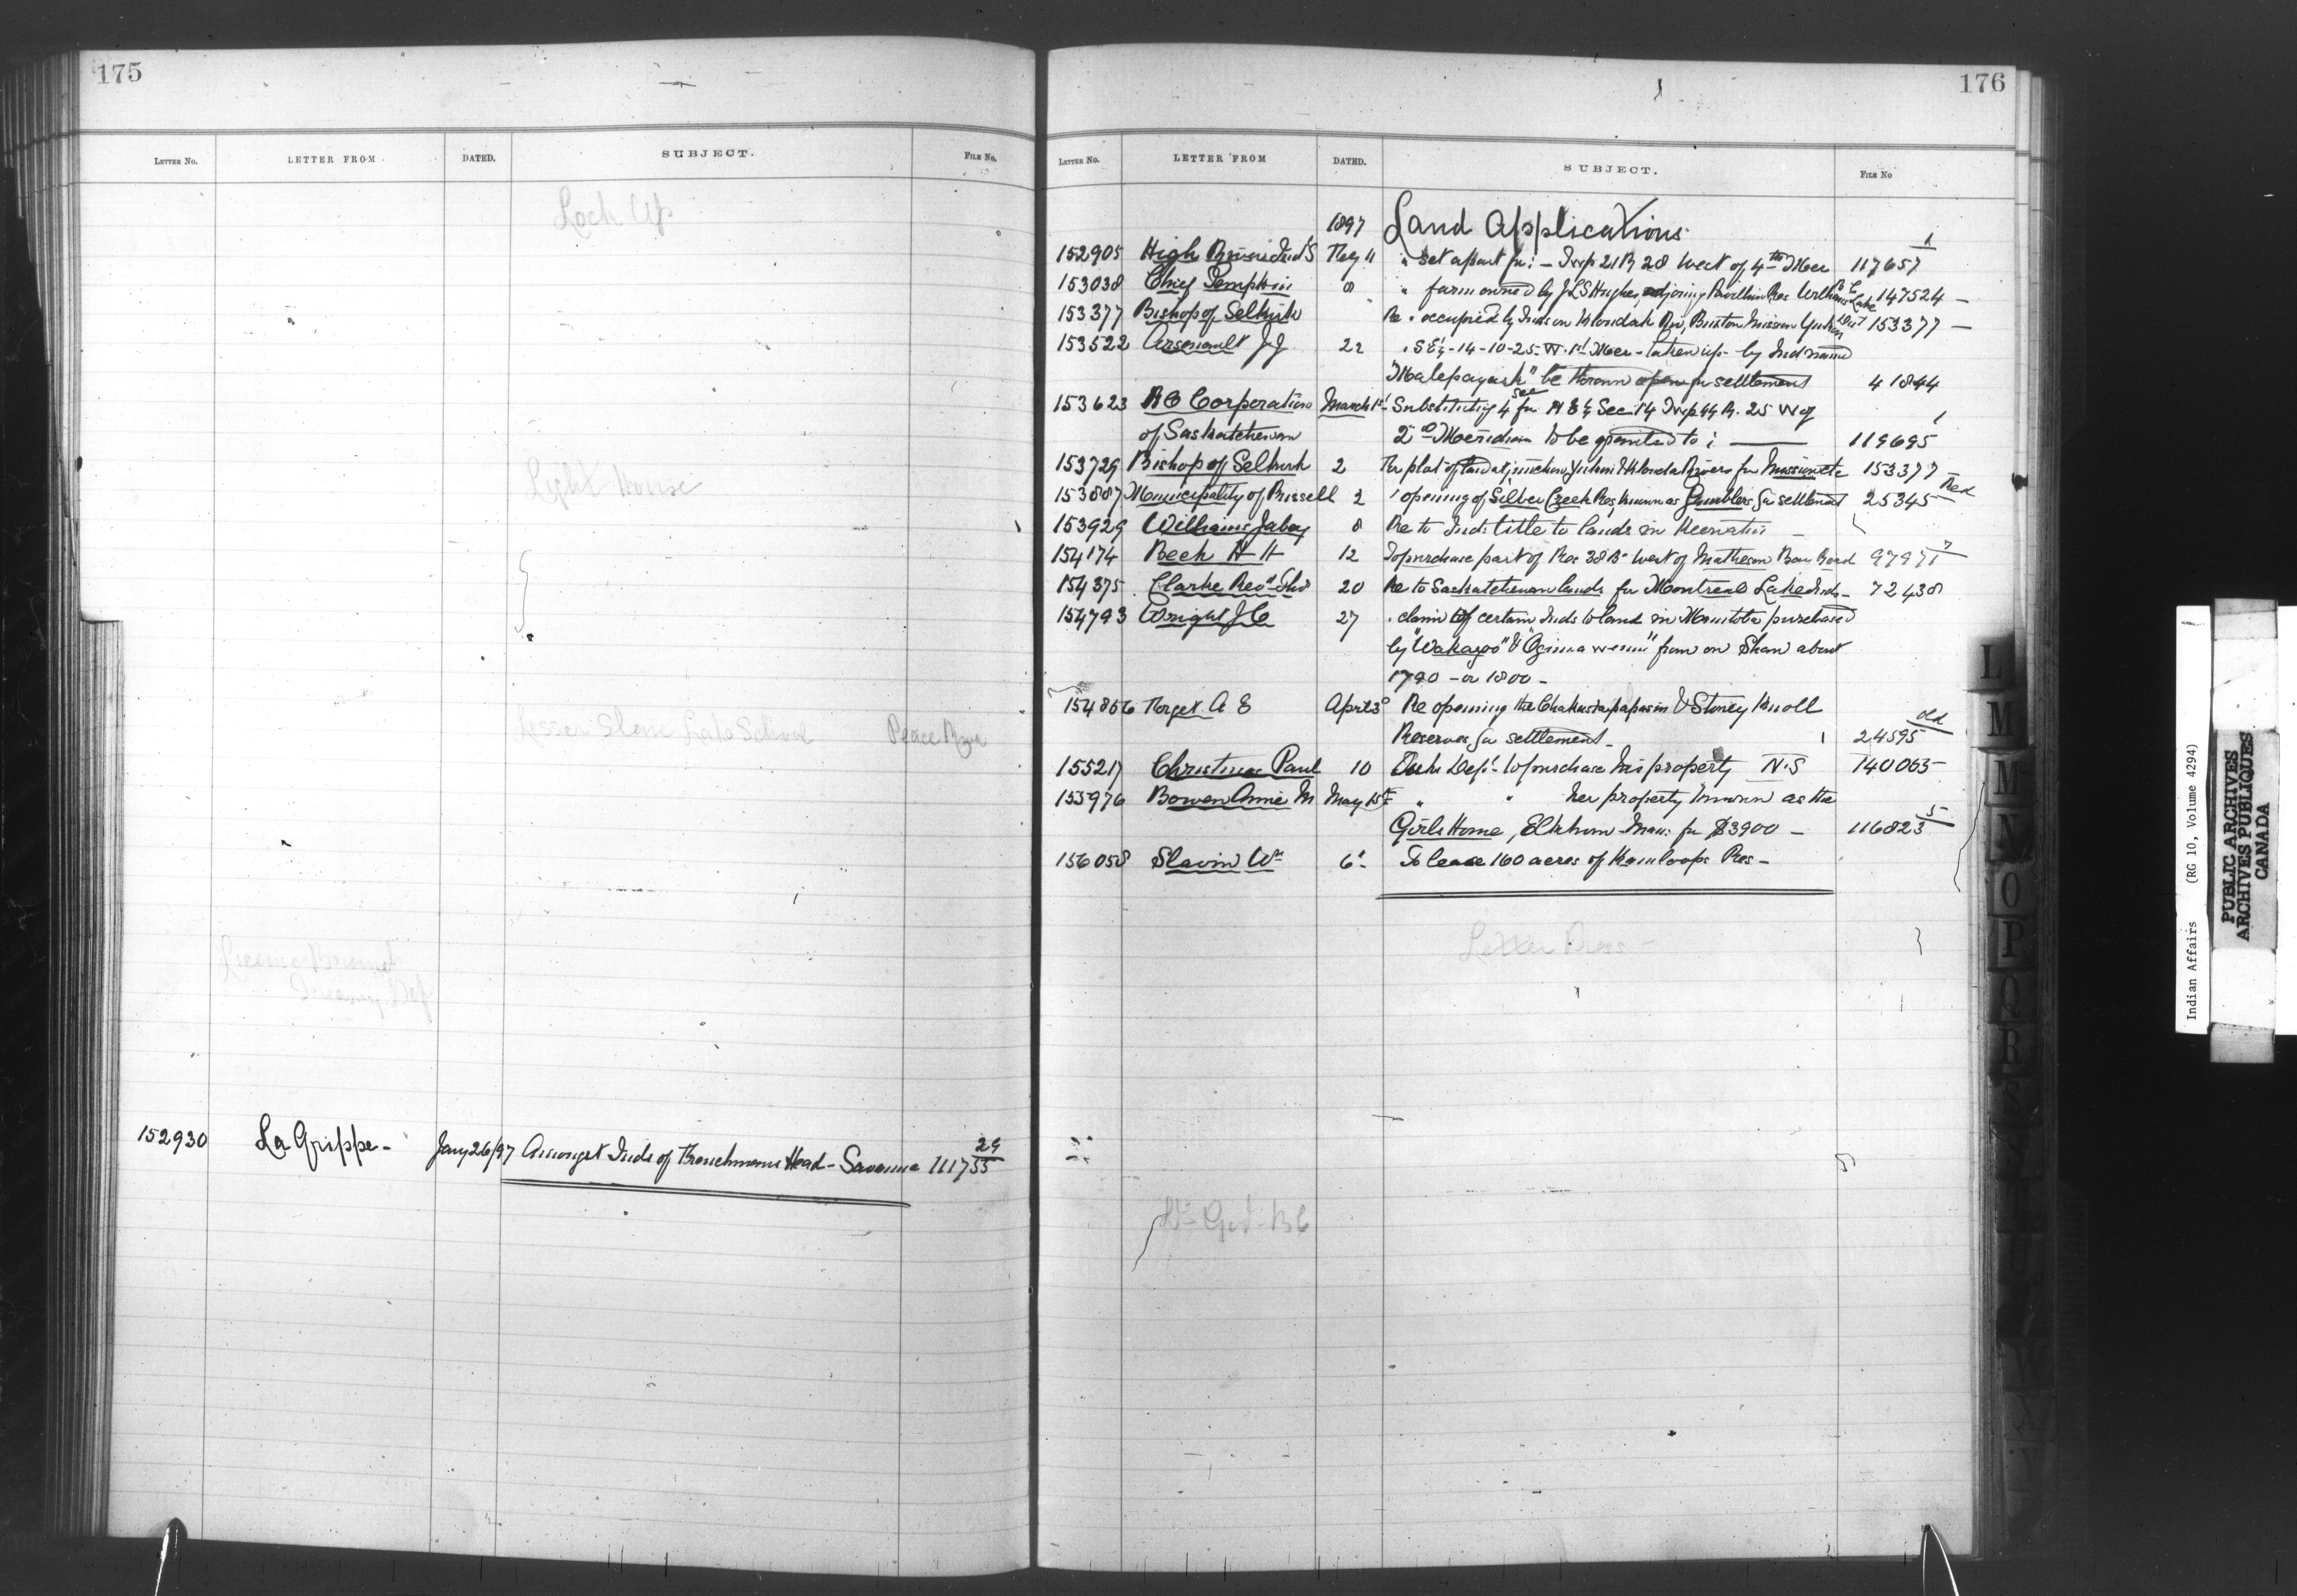 175
LETTER No. LETTER FROM. DATED. SUBJECT. FILE No.
Lock Up
Light House
Lesser Slave Lake School Peace River
License Branch
Treasury Dep
152930 La Grippe - Jany 26/97 Amongst Inds of Frenchmans Head - Savanne 111755 29
176
LETTER No. LETTER FROM DATED. SUBJECT. FILE No
1897 Land Applications
152905 High River Ind's Feby 11 " Set apart for: - Twp 21 R 28 West of 4th Mer 117657 1
153038 Chief 8 " farm owned by J L S Hughes, adjoining Pavillion Res Williams Lake B C 147524 -
153377 Bishop of Selkirk " Re " occupied by Inds on Klondak Riv, Buxton Mission Yukon Dist 153377 -
153522 Arsenault J J 22 " S E¼ - 14 - 10 - 25 - W. 1st Mer - taken up by Ind named
"Malepayash" be thrown open for settlement 41844
153623 R C Corporation March 1st Substituting 4 sec for N E ¼ Sec 14 Twp 44 R. 25 W of
of Saskatchewan 2nd Meridian to be granted to : 119695 1
153729 Bishop of Selkirk 2 For plot of land at junction Yukon & Klonda Rivers for Mission etc 153377
153887 Municipality of Russell 2 " opening of Silver Creek Res, known as Gamblers for settlement 25345 Red
153929 Williams Jabey 8 Re to Inds title to lands in Keewatin
154174 Beck H H 12 To purchase part of Res 38 B West of Matheson Bay Road 97971 7
154375 Clarke Revd Thos 20 Re to Saskatchewan lands for Montreal Lake Inds - 72438
154793 Wright J C 27 " claim of certain Inds to land in Manitoba purchased
by "Wakazoo" & "Ogimawenini" from on Shaw about
1790 - or 1800 -
154856 Forget A E April 3d Re opening the Chakastapapasin & Stoney Knoll
Reserves for settlement - 24595 old
155217 Christmas Paul 10 Dept to purchase his property N.S 140065
155976 Bowen Annie M May 15th " " her property known as the
Girls Home, Elkhorn Man: for $3900 - 116823 5
156058 Slavin Wm 6 - To lease 160 acres of Kamloops Res -
Letter Press -
Lt - Gov - B C
L
M
M
N
O
P
Q
R
S
T
U
W
X
Y
Indian Affairs (RG 10, Volume 4294)
PUBLIC ARCHIVES
ARCHIVES PUBLIQUES
CANADA